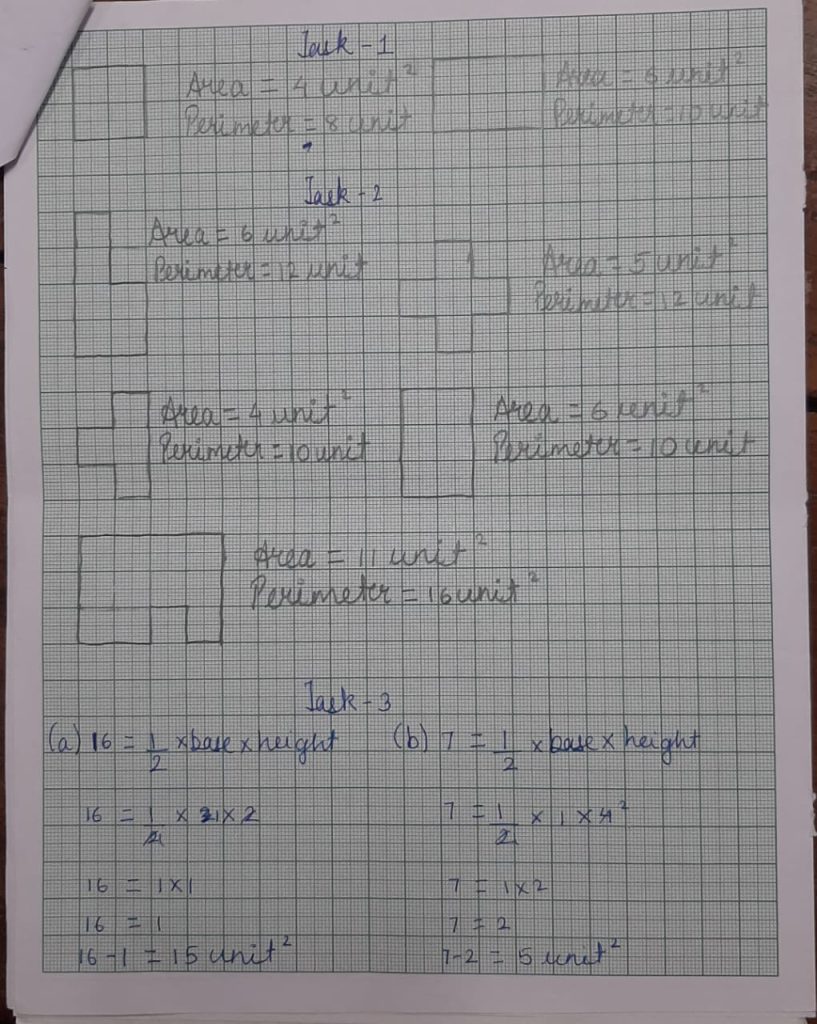 Task - 1
Area = 4 unit²
Perimeter = 8 unit
Area = 6 unit²
Perimeter = 10 unit
Task - 2
Area = 6 unit²
Perimeter = 12 unit
Area = 5 unit²
Perimeter = 12 unit
Area = 4 unit²
Perimeter = 10 unit
Area = 6 unit²
Perimeter = 10 unit
Area = 11 unit²
Perimeter = 16 unit²
Task - 3
(a) 16 = 1/2 × base × height
16 = 1/2 × 2 × 2
16 = 1 × 1
16 = 1
16 - 1 = 15 unit²
(b) 7 = 1/2 × base × height
7 = 1/2 × 1 × 4²
7 = 1 × 2
7 = 2
7 - 2 = 5 unit²